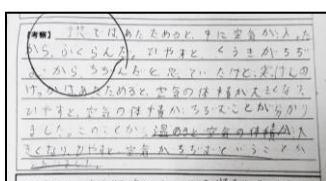 【考察】ではあたためると、中に空気が入った
から、ふくらんだ、ひやすと、くうきがちぢ
からちぢんだと思っていたけど、実けんの
けっかはあたためると空気の体せきが大きくなり、
ひやすと、空気の体せきがちぢむことが分かり
ました。このことから、温めると空気の体積は大
きくなり、ひやすと、空気がちぢむということが